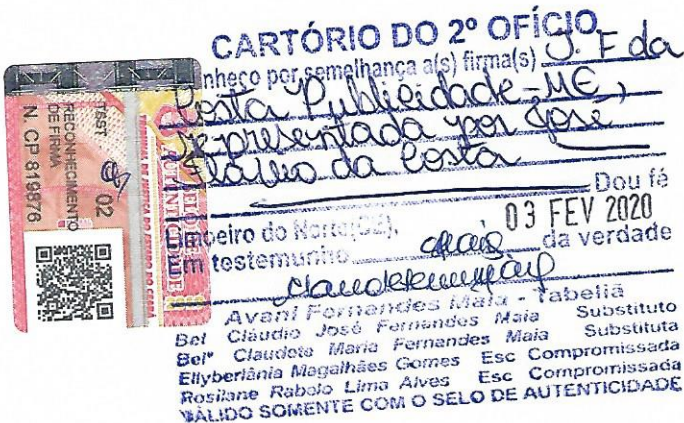 CARTÓRIO DO 2º OFÍCIO
nheço por semelhança a(s) firma(s) J. F da
Costa Publicidade-ME,
representada por José
da Costa
Dou fé
Limoeiro do Norte(CE), 03 FEV 2020
Em testemunho da verdade
Avani Fernandes Maia - Tabeliã
Bel Cláudio José Fernandes Maia Substituto
Belª Claudete Maria Fernandes Maia Substituta
Ellyberlânia Magalhães Gomes Esc Compromissada
Rosilane Rabelo Lima Alves Esc Compromissada
VÁLIDO SOMENTE COM O SELO DE AUTENTICIDADE
02
RECONHECIMENTO
DE FIRMA
N. CP 819876